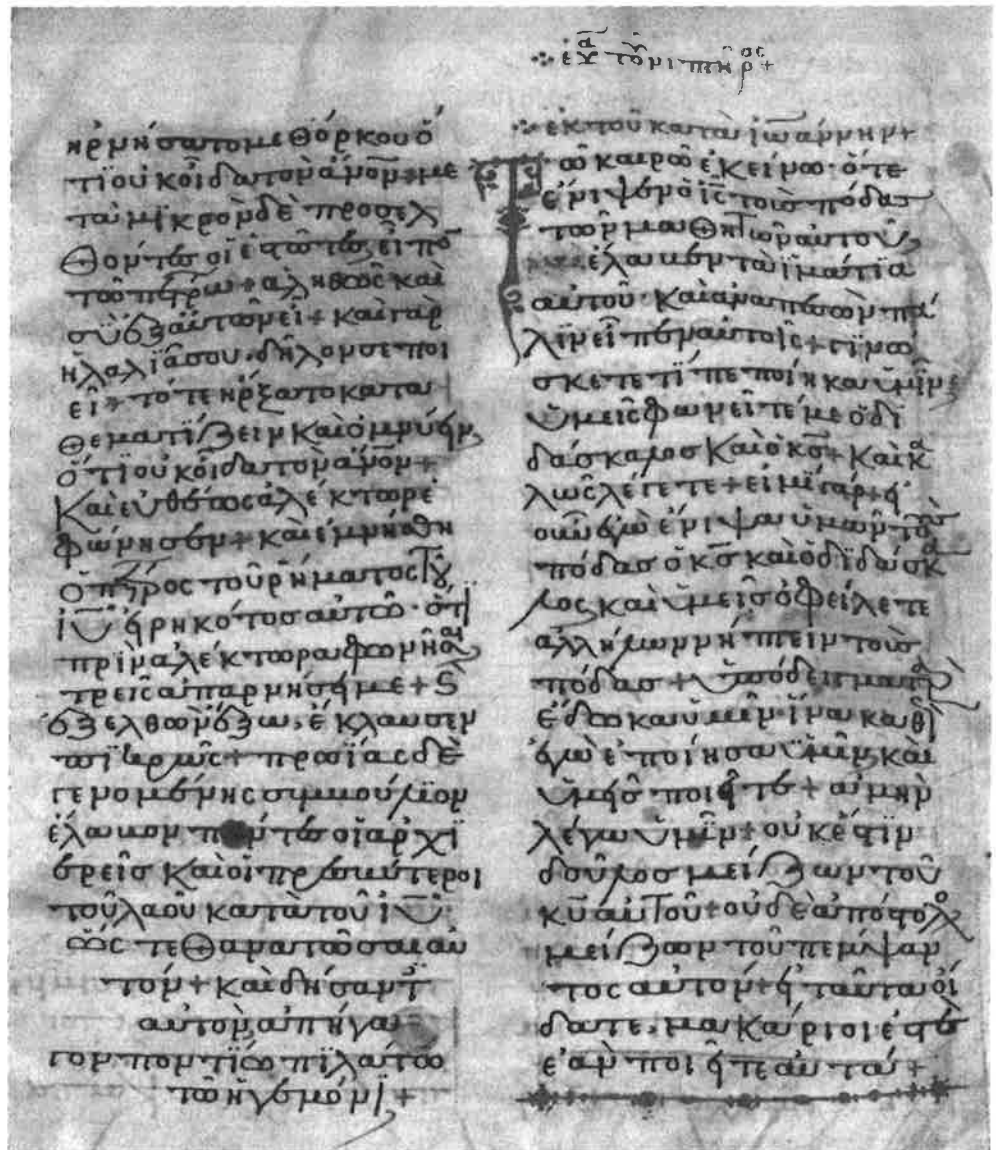 τοῦ νιπτῆρος +
ηρνήσατο με θόρκου ὅ
τι οὐκ οἶδα τὸν ἄνο̅ν + με
τὰ μικρὸν δὲ προσελ
θόντες οἱ ἑστῶτες, εἶπο̅
τῶ πέτρω + ἀληθῶς καὶ
σὺ ἐξ αὐτῶν εἶ + καὶ γὰρ
ἡ λαλϊά σου δῆλόν σε ποι
εῖ + τότε ηρξατο κατα
θεματΐζειν καὶ ὀμνύειν
ὅτϊ οὐκ οἶδα τὸν ἄνο̅ν +
Καὶ εὐθέως ἀλέκτωρ ἐ
φώνησεν + καὶ ἐμνήσθη
ὁ πέτρος τοῦ ῥήματος τοῦ
ἰυ̅ εἰρηκότος αὐτῶ· ὅτι
πρὶν ἀλέκτωρα φωνῆσαι
τρεῖς ἀπαρνήσει με + ϗ
ἐξελθὼν ἔξω, ἔκλαυσεν
πϊκρῶς + πρωΐας δὲ
γενομένης συμβούλϊον
ἔλαβον πάντες οἱ ἀρχϊ
ερεῖς καὶ οἱ πρεσβύτεροι
τοῦ λαοῦ κατὰ τοῦ ἰυ̅
ὥστε θανατῶσαι αὐ
τόν + καὶ δήσαντ
αὐτὸν ἀπήγα
γον ποντΐω πϊλάτω
τῶ ἡγεμόνι +
ἐκ τοῦ κατὰ ἰωάννην +
Τῶ καιρῶ ἐκείνω· ὅτε
ἔνιψεν ὁ ἰς̅ τοὺς πόδας
τῶν μαθητῶν αὐτοῦ,
ἔλαβεν τὰ ἱμάτϊα
αὐτοῦ· καὶ ἀναπεσὼν πά
λϊν εἶπεν αὐτοῖς + γϊνώ
σκετε τΐ πεποίηκα ὑμῖν
ὑμεῖς φωνεῖτέ με ὁ δϊ
δάσκαλος καὶ ὁ κς̅ + καὶ κα
λῶς λέγετε + εἰμὶ γάρ + εἰ
οὖν ἐγὼ ἔνιψα ὑμῶν τοὺς
πόδας ὁ κς̅ καὶ ὁ δϊδάσκα
λος καὶ ὑμεῖς ὀφείλετε
ἀλλήλων νήπτειν τοὺς
πόδας + ὑπόδειγμα γὰρ
ἔδωκα ὑμῖν ἵνα καθὼς
ἐγὼ ἐποίησα ὑμῖν καὶ
ὑμεῖς ποιῆτε + ἀμὴν
λέγω ὑμῖν + οὐκ ἔστϊν
δοῦλος μείζων τοῦ
κυ̅ αὐτοῦ + οὐδὲ ἀπόστολος
μείζων τοῦ πέμψαν
τος αὐτόν + εἰ ταῦτα οἴ
δατε, μακάριοί ἐστε
ἐὰν ποιῆτε αὐτά +